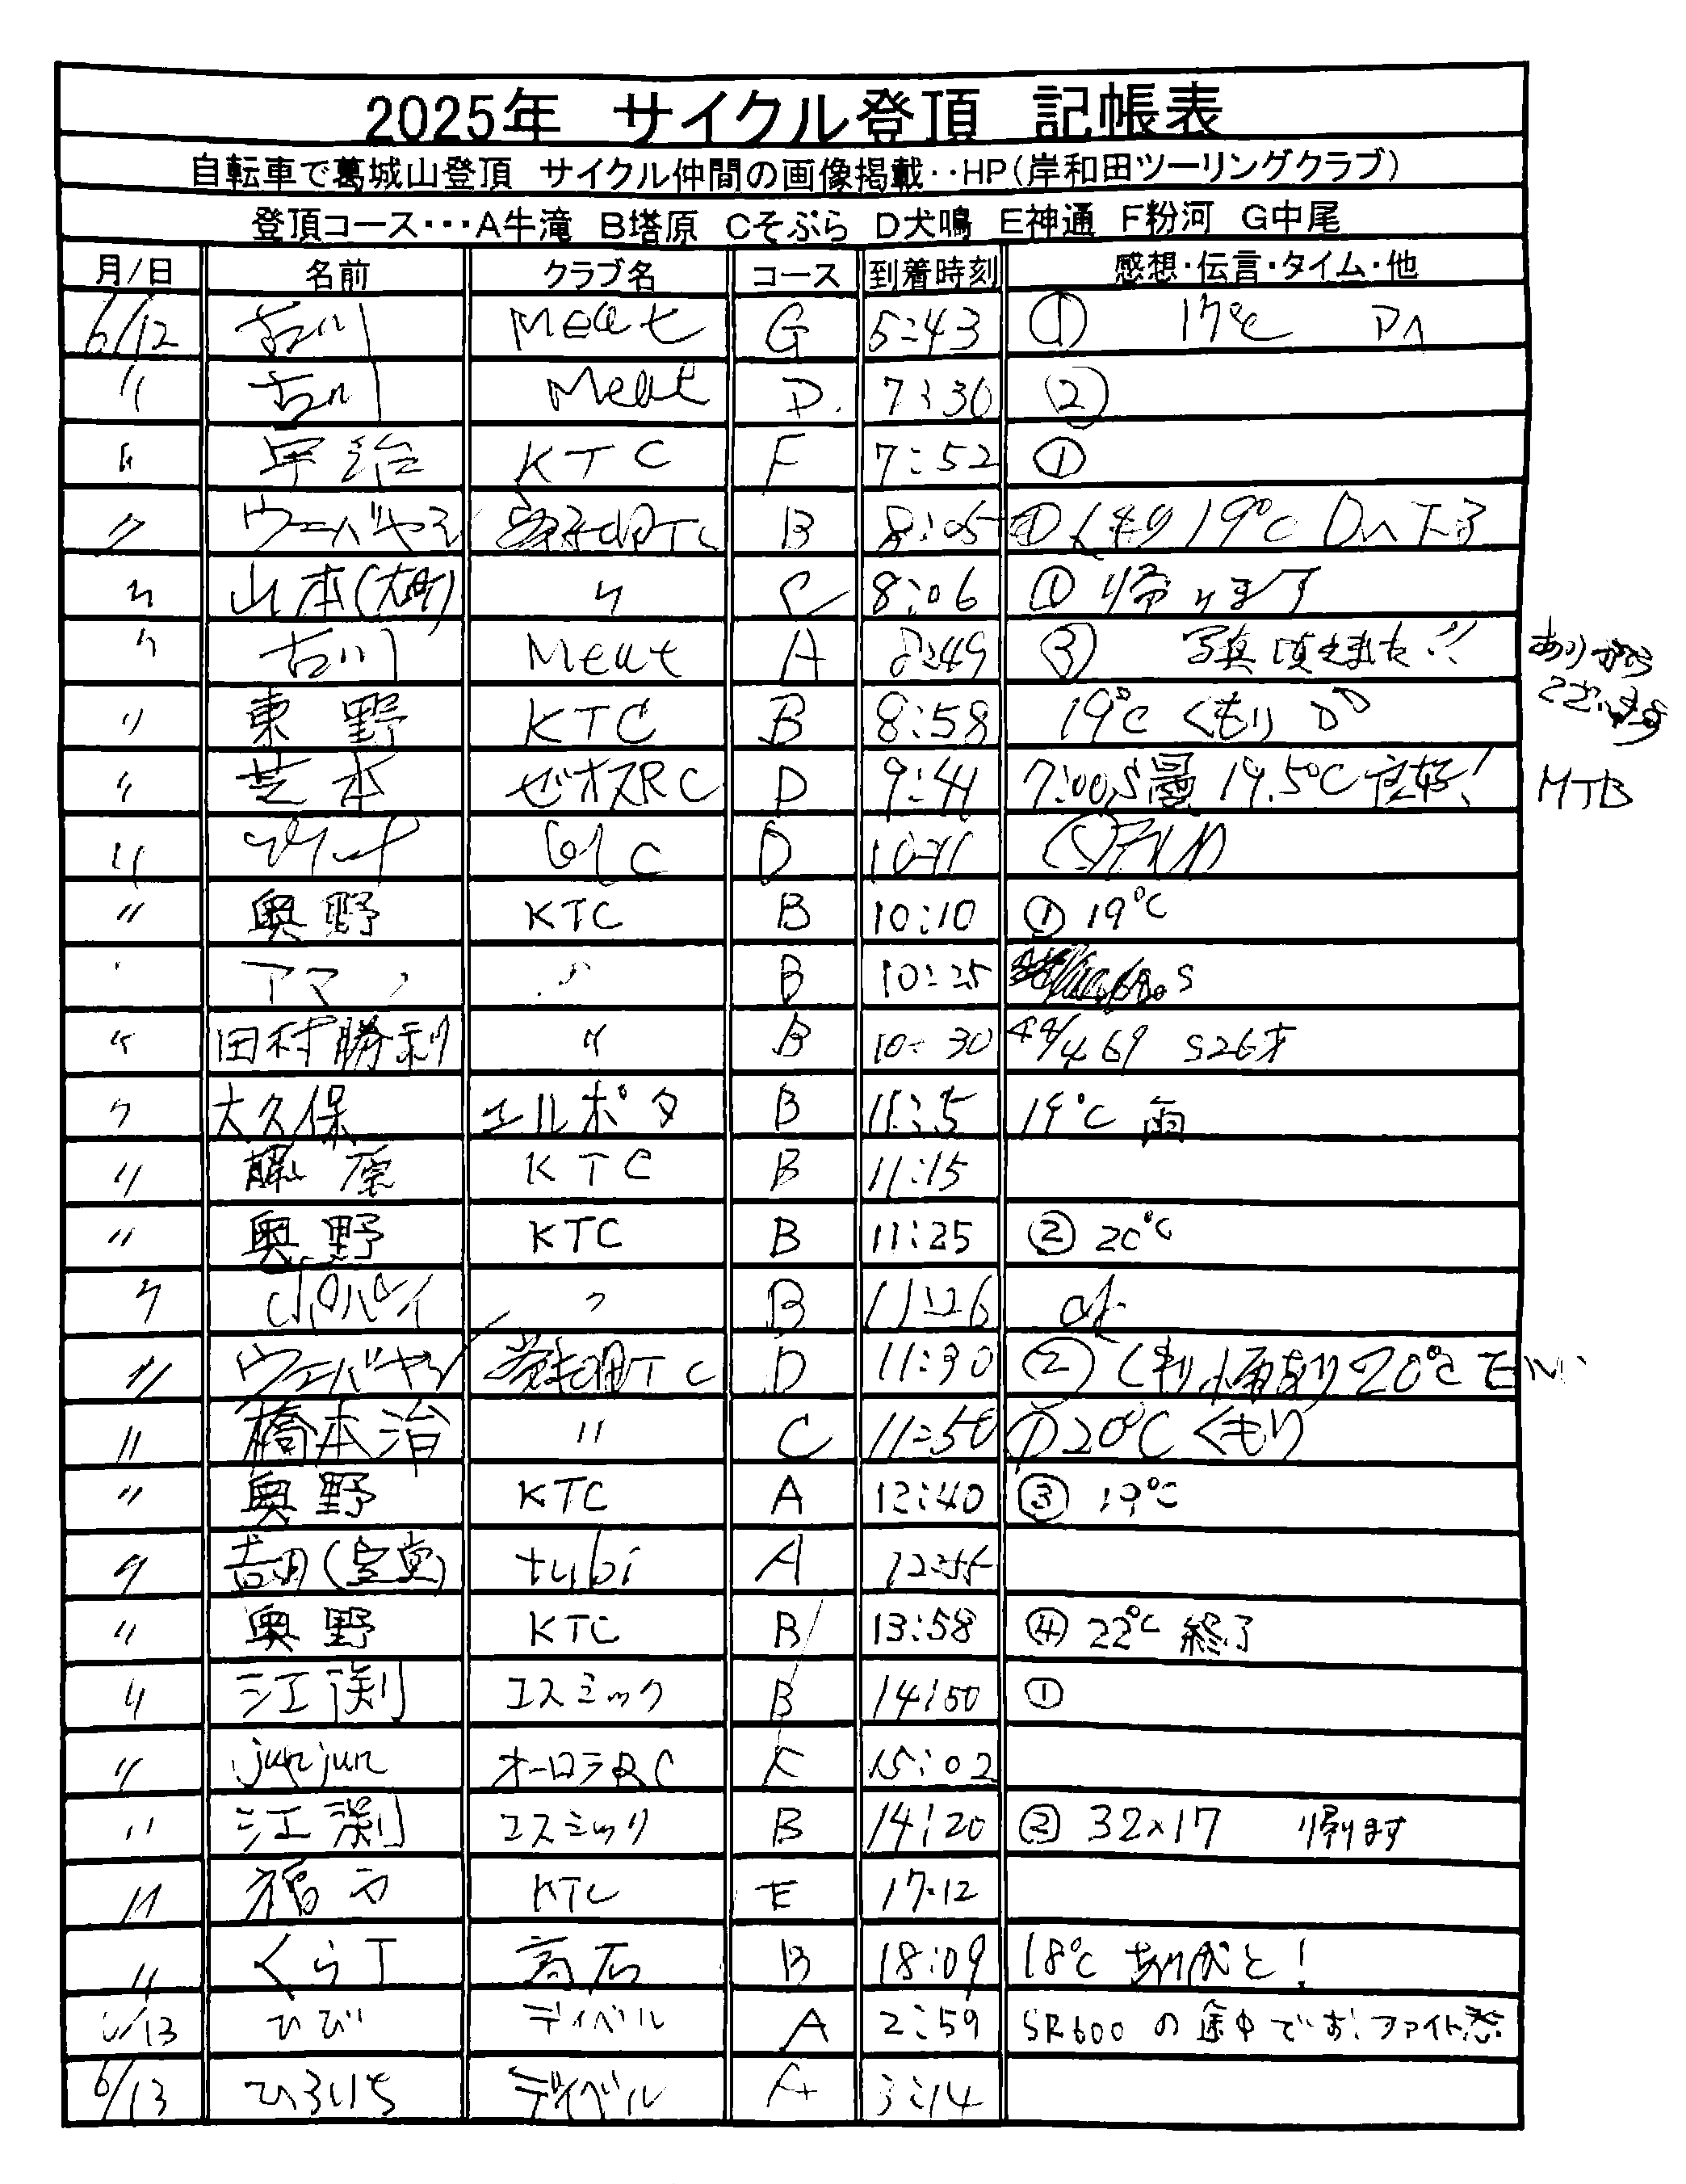 2025年 サイクル登頂 記帳表
自転車で葛城山登頂 サイクル仲間の画像掲載‥HP(岸和田ツーリングクラブ)
登頂コース･･･A牛滝 B塔原 Cそぶら D犬鳴 E神通 F粉河 G中尾
月/日 名前 クラブ名 コース 到着時刻 感想･伝言･タイム･他
6/12 古川 Meat G 5:43 ① 17℃ Dへ
〃 古川 Meat D. 7:30 ②
〃 宇治 KTC F 7:52 ①
〃 ウエバヤシ TC B 8:05 ① くもり 19℃ Dへ下る
〃 山本(大町) 〃 C 8:06 ① 帰ります
〃 古川 Meat A 8:49 ③ 写真頂きました!! ありがとうございます
〃 東野 KTC B 8:58 19℃ くもり
〃 芝本 ゼオスRC D 9:41 7:00 19.5℃ 良好! MTB
〃 D
〃 奥野 KTC B 10:10 ① 19℃
アマノ 〃 B 10:25
〃 田村勝利 〃 B 10:30 469 526才
〃 大久保 エルポタ B 11:5 19℃ 雨
〃 藤原 KTC B 11:15
〃 奥野 KTC B 11:25 ② 20℃
〃 ポパイ 〃 B 11:26 ok
〃 ウエバヤシ TC D 11:30 ② くもり 小雨あり 20℃
〃 橋本治 〃 C 11:50 ① 20℃ くもり
〃 奥野 KTC A 12:40 ③ 19℃
〃 吉田(宝堂) tubi A 12:55
〃 奥野 KTC B 13:58 ④ 22℃ 終了
〃 江渕 コスミック B 14:00 ①
〃 junjun オーロラRC F 15:02
〃 江渕 コスミック B 14:20 ② 32×17 帰ります
〃 KTC E 17:12
〃 くらT 高石 B 18:09 18℃ ！
6/13 ひび ディベル A 2:59 SR600の途中です。ファイト
6/13 ひろいち ディベル A 3:14